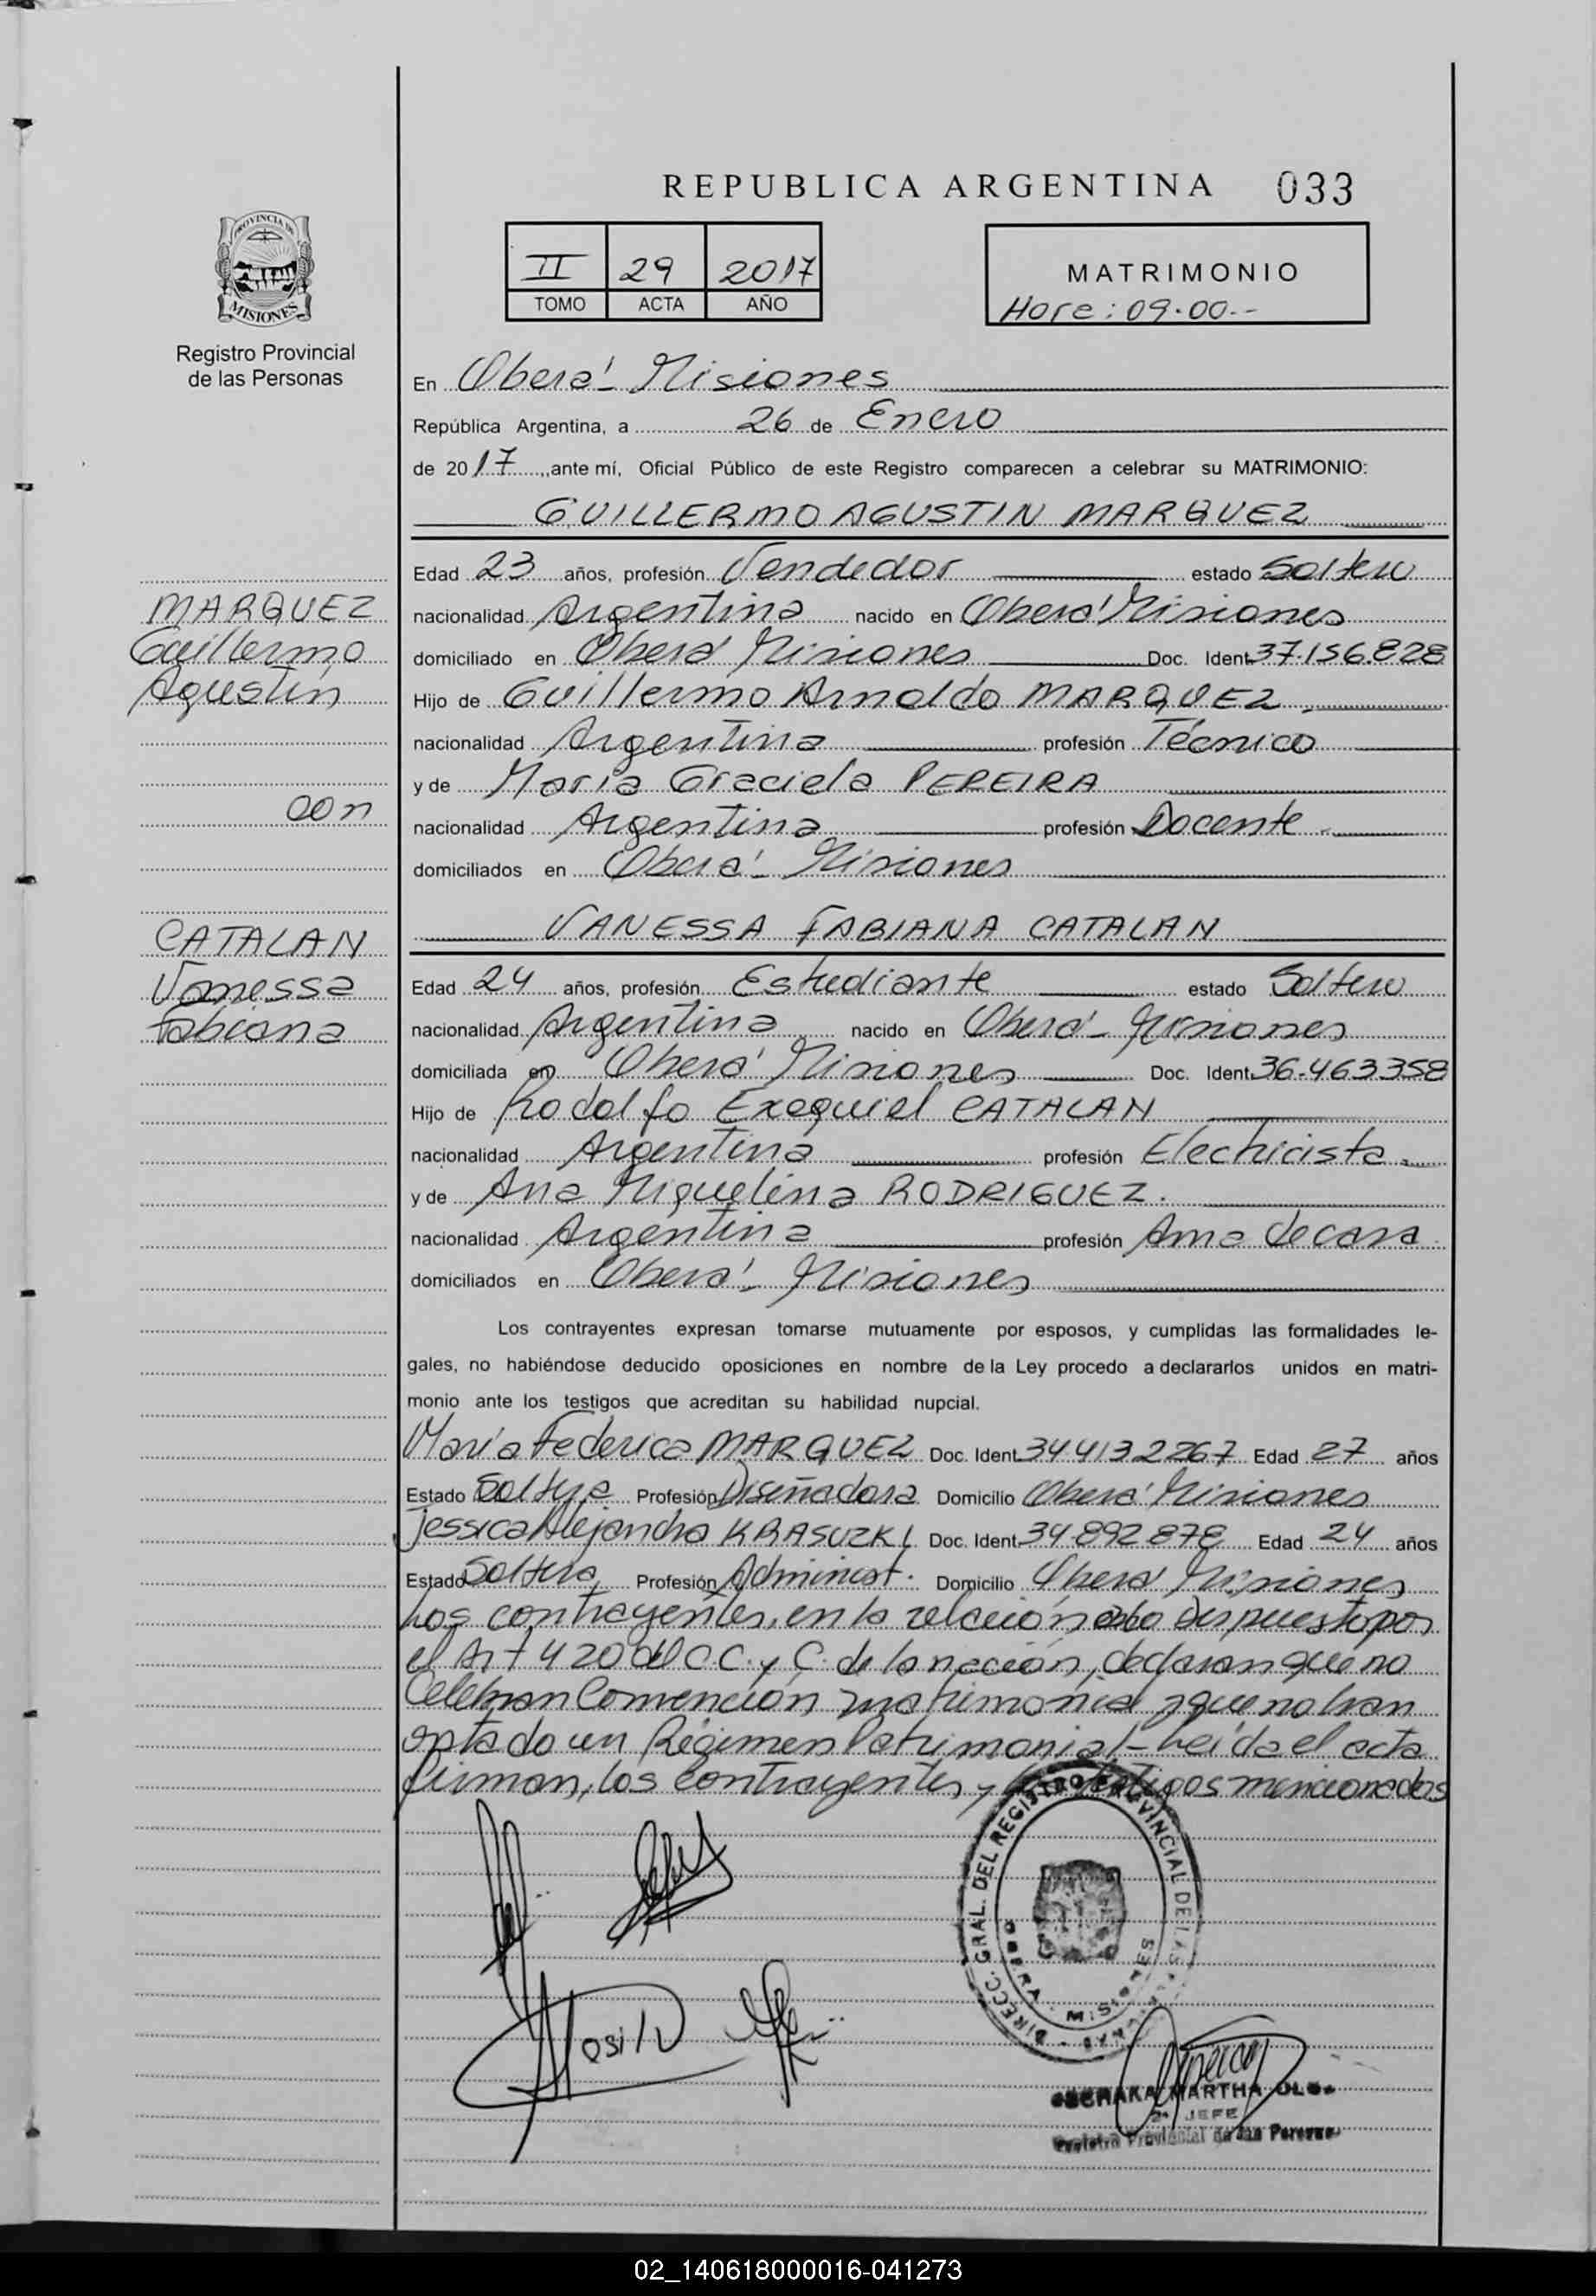 REPUBLICA ARGENTINA 033
PROVINCIA DE
MISIONES
Registro Provincial
de las Personas
II 29 2017
TOMO ACTA AÑO
MATRIMONIO
Hora: 09.00.-
En Oberá - Misiones
República Argentina, a 26 de Enero
de 2017, ante mí, Oficial Público de este Registro comparecen a celebrar su MATRIMONIO:
GUILLERMO AGUSTIN MARQUEZ
MARQUEZ
Guillermo
Agustín
con
CATALAN
Vanessa
Fabiana
Edad 23 años, profesión Vendedor estado Soltero
nacionalidad Argentina nacido en Oberá Misiones
domiciliado en Oberá Misiones Doc. Ident. 37.156.828
Hijo de Guillermo Arnaldo MARQUEZ.
nacionalidad Argentina profesión Técnico
y de María Graciela PEREIRA
nacionalidad Argentina profesión Docente.
domiciliados en Oberá - Misiones
VANESSA FABIANA CATALAN
Edad 24 años, profesión Estudiante estado Soltero
nacionalidad Argentina nacido en Oberá - Misiones
domiciliada en Oberá Misiones Doc. Ident. 36.463358
Hijo de Rodolfo Exequiel CATALAN
nacionalidad Argentina profesión Electricista.
y de Ana Miguelina RODRIGUEZ.
nacionalidad Argentina profesión Ama de casa
domiciliados en Oberá - Misiones
Los contrayentes expresan tomarse mutuamente por esposos, y cumplidas las formalidades le-
gales, no habiéndose deducido oposiciones en nombre de la Ley procedo a declararlos unidos en matri-
monio ante los testigos que acreditan su habilidad nupcial.
María Federica MARQUEZ Doc. Ident. 34.4132267 Edad 27 años
Estado Soltera Profesión Diseñadora Domicilio Oberá Misiones
Jessica Alejandra KRASUZKI Doc. Ident. 34.892878 Edad 24 años
Estado Soltera Profesión Administ. Domicilio Oberá Misiones
Los contrayentes, en la relación a lo dispuesto por
el Art 420 del C.C. y C. de la nación, declaran que no
Celebran Convención matrimonial y que no han
optado un Régimen Patrimonial - Leída el acta
firman, los contrayentes y los testigos mencionados
DIRECC. GRAL. DEL REGISTRO PROVINCIAL DE LAS
OBERA - MISIONES
MARTHA
2° JEFE
Registro Provincial de las Personas
02_140618000016-041273